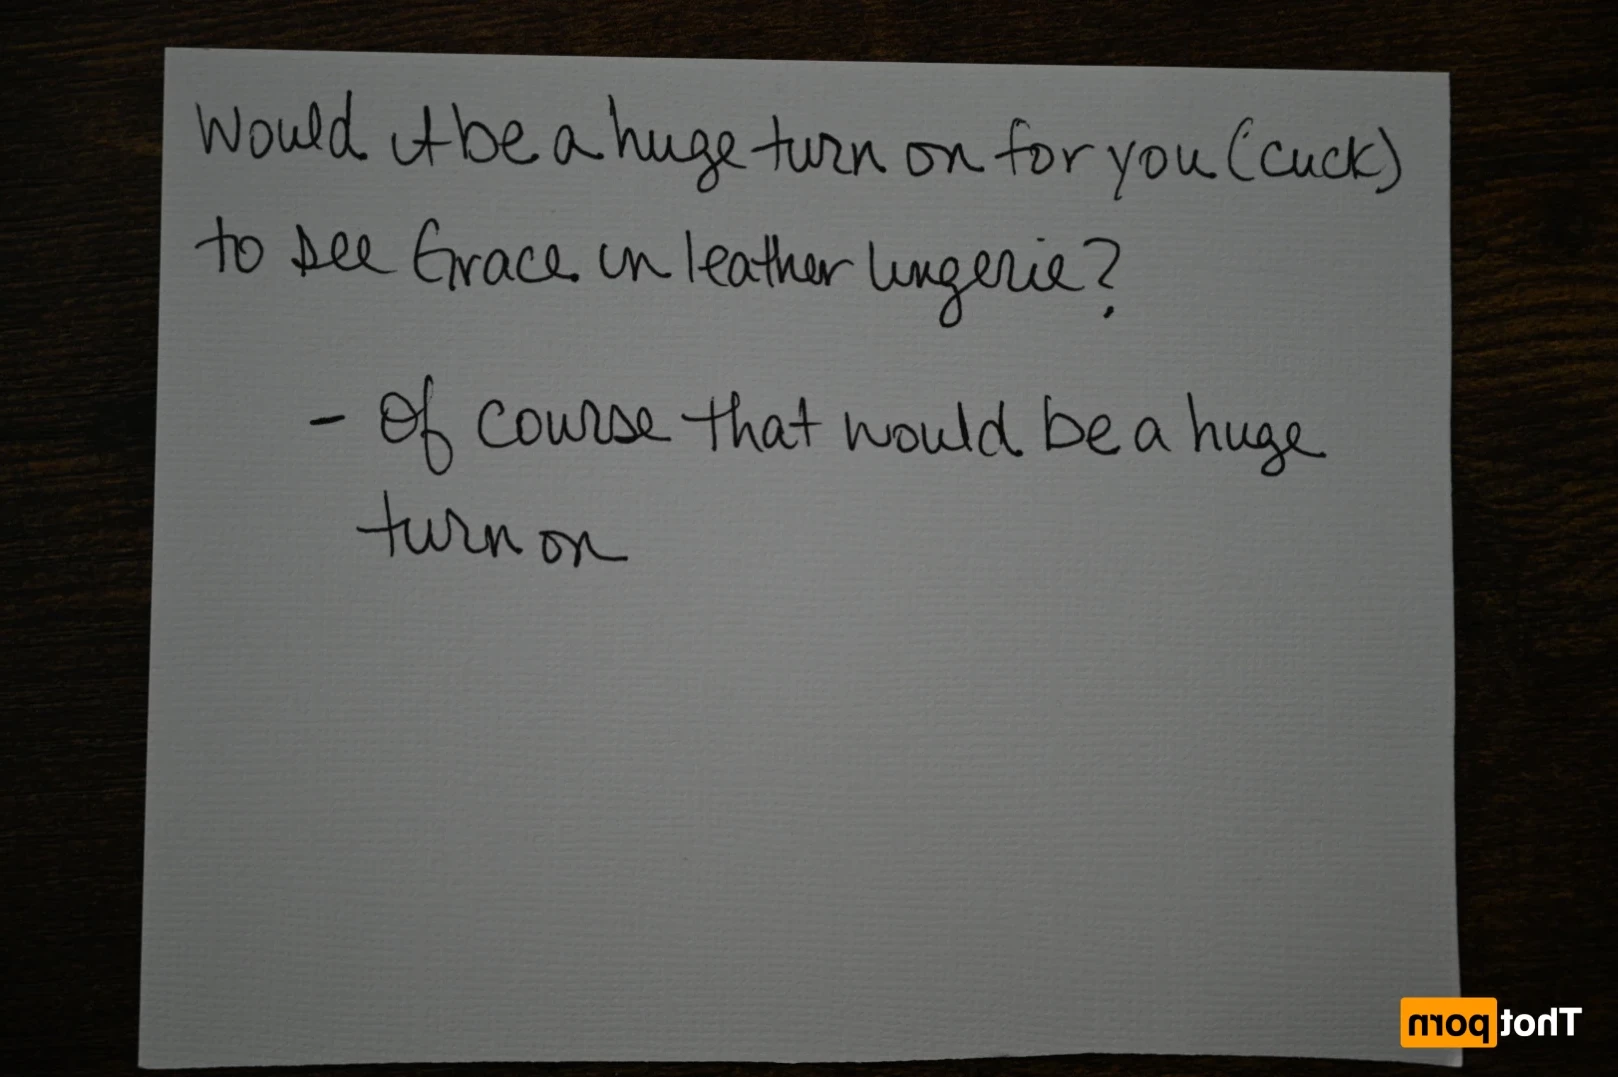 Would it be a huge turn on for you (cuck)
to see Grace in leather lingerie?
- Of course that would be a huge
turn on
Thot porn